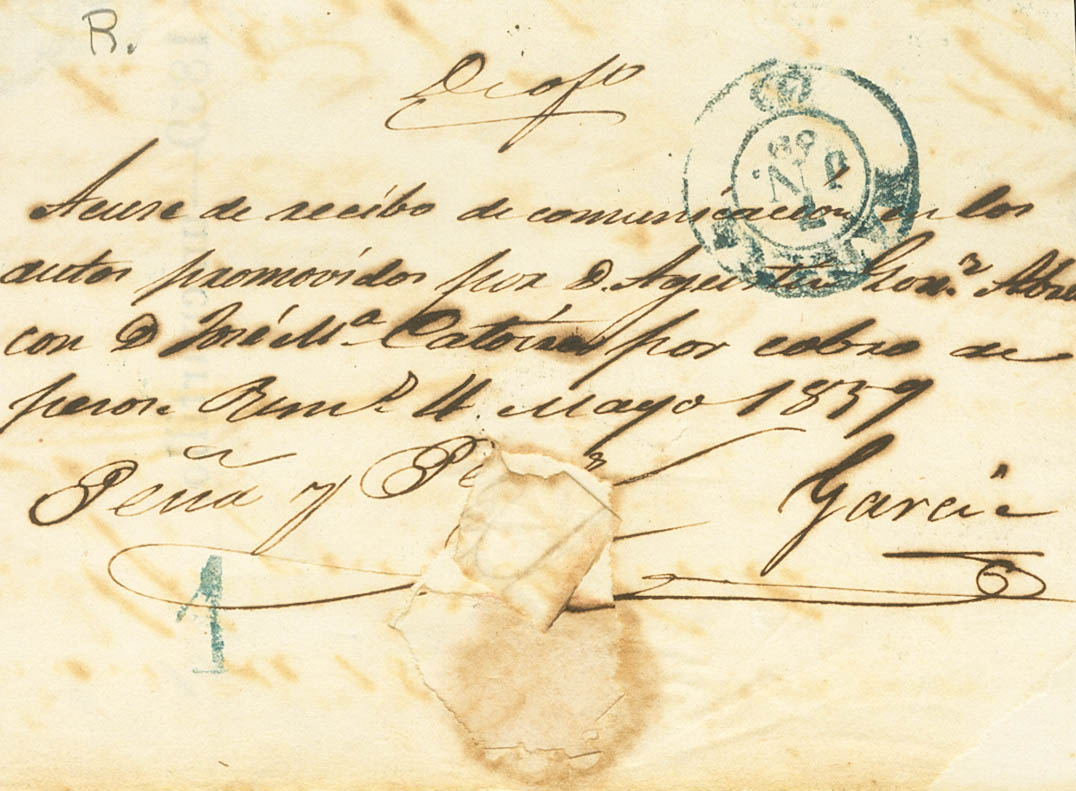 R.
De ofo
Acuse de recibo de comunicación en los
autos promovidos por D. Agustin Gonz. Abreu
con D José Ma. Catoira por cobro de
pesos. 4. Mayo 1859
Peña y García
1